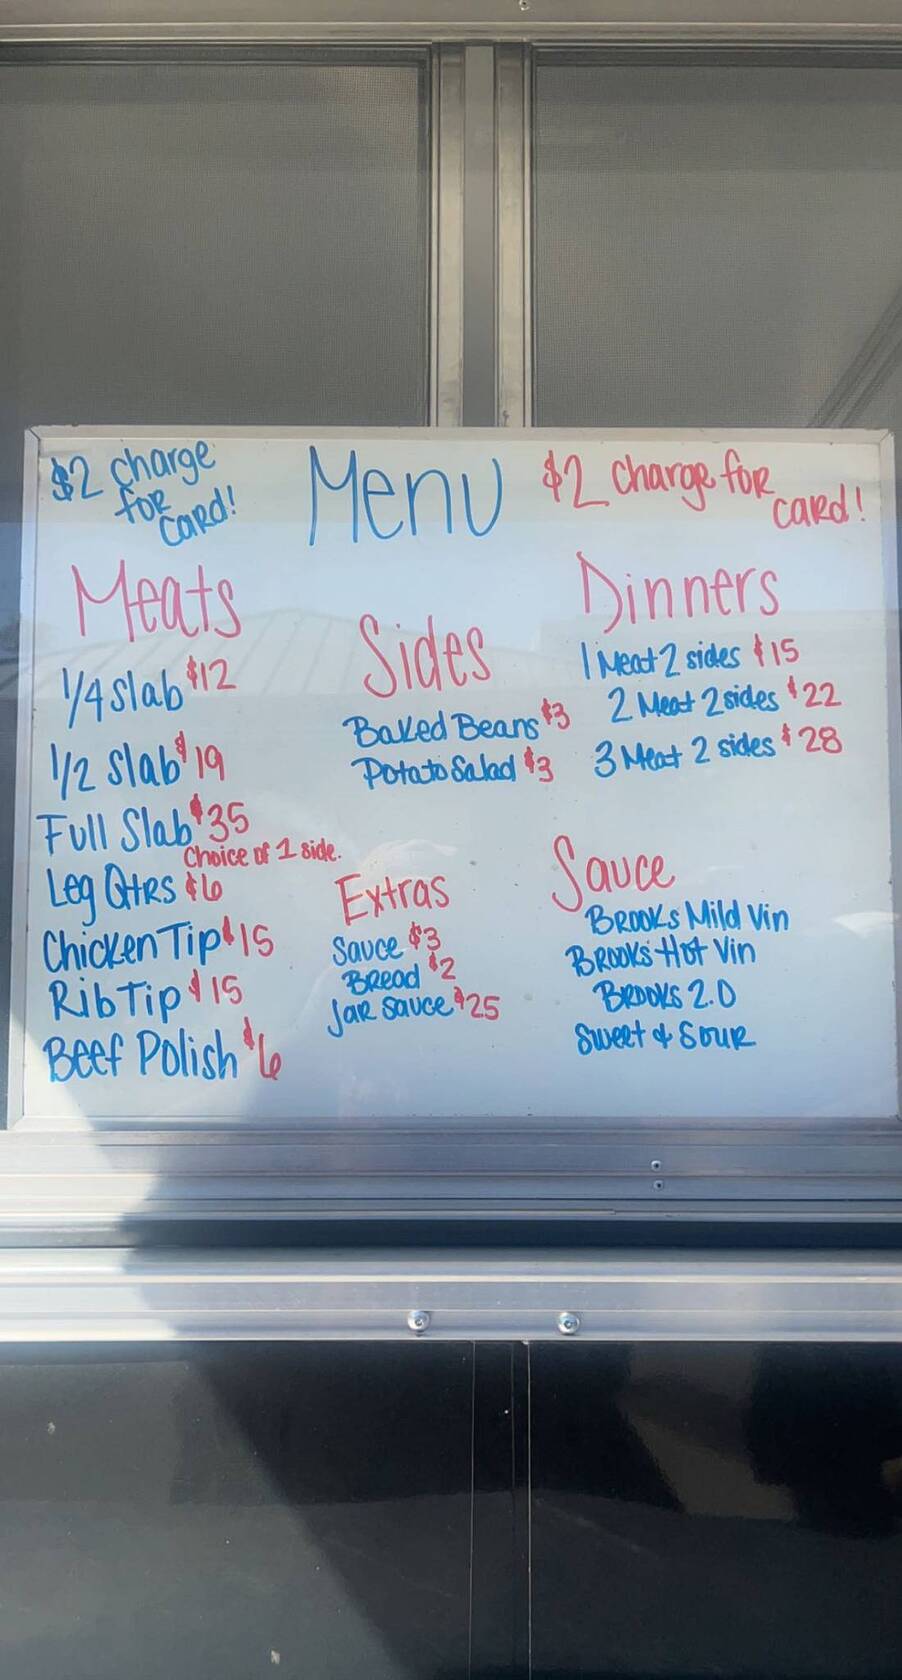 $2 charge
for
card!
Menu
$2 charge for
card!
Meats
1/4 Slab $12
1/2 Slab $19
Full Slab $35
Choice of 1 side.
Leg Qtrs $6
Chicken Tip $15
Rib Tip $15
Beef Polish $6
Sides
Baked Beans $3
Potato Salad $3
Extras
Sauce $3
Bread $2
Jar Sauce $25
Dinners
1 Meat 2 sides $15
2 Meat 2 sides $22
3 Meat 2 sides $28
Sauce
Brooks Mild Vin
Brooks Hot Vin
Brooks 2.0
Sweet & Sour